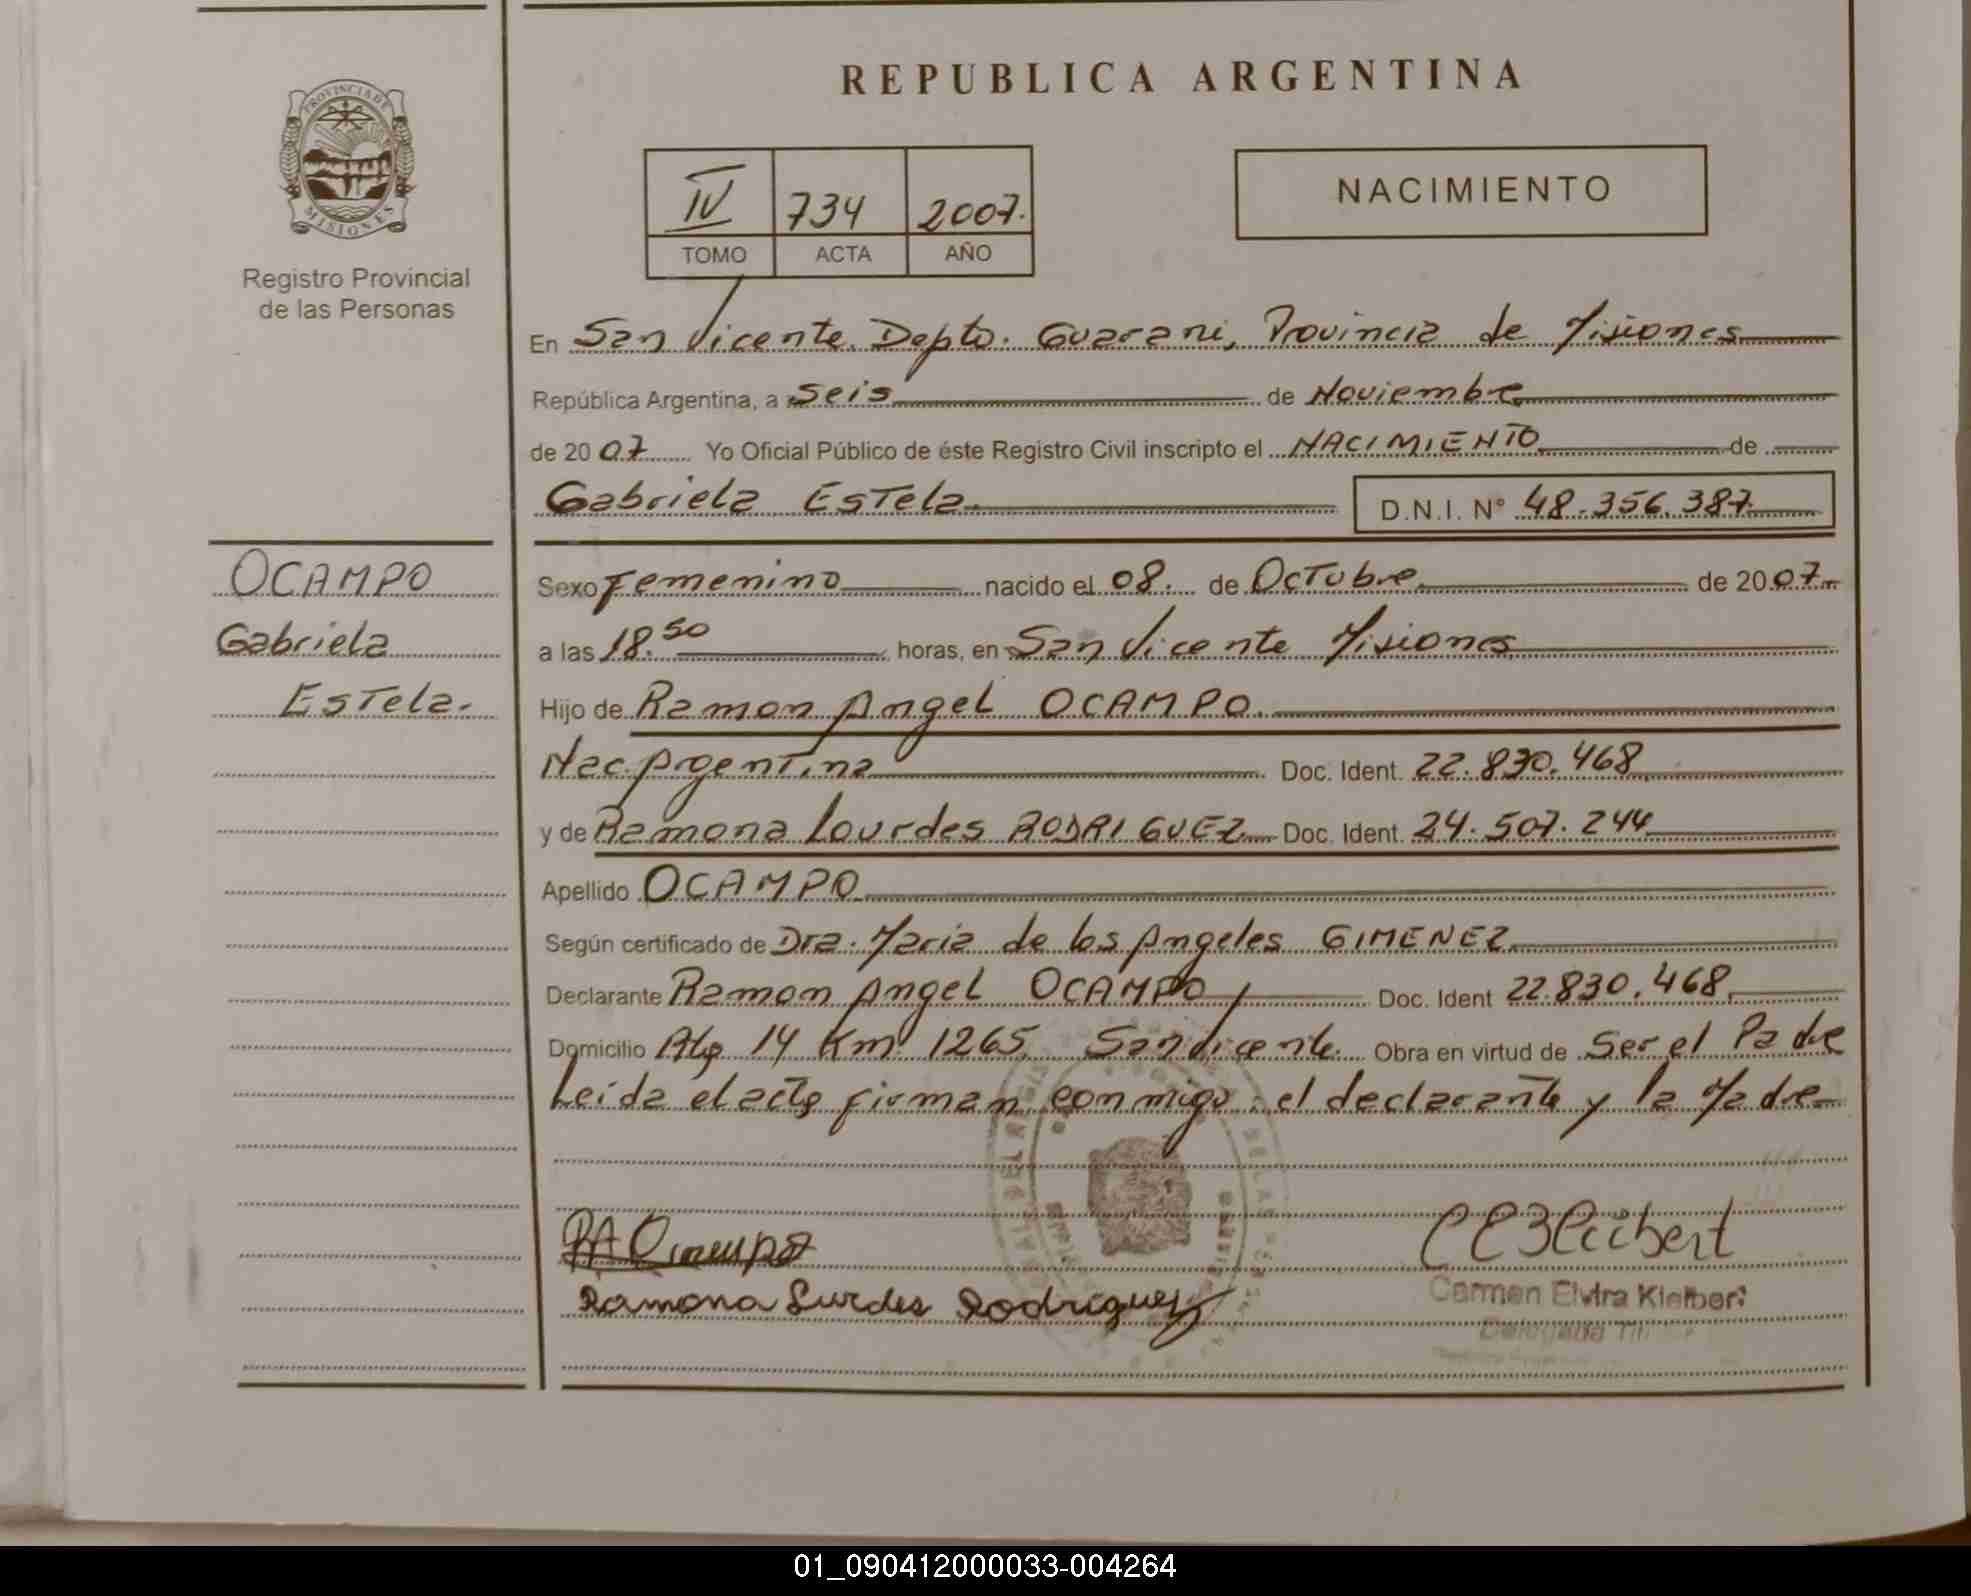 REPUBLICA ARGENTINA
PROVINCIA DE
MISIONES
Registro Provincial
de las Personas
IV 734 2007.
TOMO ACTA AÑO
NACIMIENTO
En San Vicente. Depto. Guarani, Provincia de Misiones
República Argentina, a seis de Noviembre
de 2007 Yo Oficial Público de éste Registro Civil inscripto el NACIMIENTO de
Gabriela Estela. D.N.I. Nº 48.356.387.
OCAMPO
Gabriela
Estela.
Sexo Femenino nacido el 08. de Octubre de 2007.
a las 18.50 horas, en San Vicente Misiones
Hijo de Ramon Angel OCAMPO.
Nac. Argentina Doc. Ident. 22.830.468
y de Ramona Lourdes RODRIGUEZ Doc. Ident. 24.507.244
Apellido OCAMPO
Según certificado de Dra. Maria de los Angeles GIMENEZ
Declarante Ramon Angel OCAMPO Doc. Ident 22.830.468
Domicilio 14 Km 1265 San Vicente. Obra en virtud de Ser el Padre
Leida el acta firman conmigo: el declarante y la Madre
RA Ocampo
Ramona Lurdes Rodriguez
Carmen Elvira Kleibert
Delegada
01_090412000033-004264